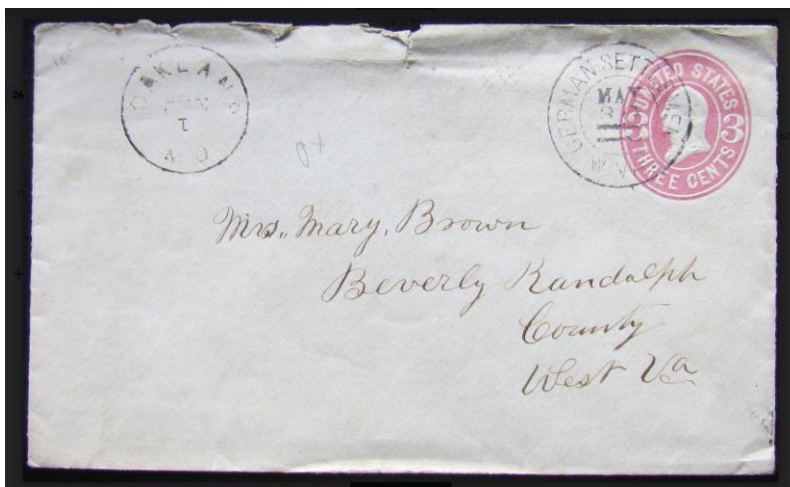 OAKLAND
1
MD
GERMAN SETTLEMENT
MAY
W.V.
UNITED STATES
3 3
THREE CENTS
Mrs. Mary. Brown
Beverly Randolph
County
West Va